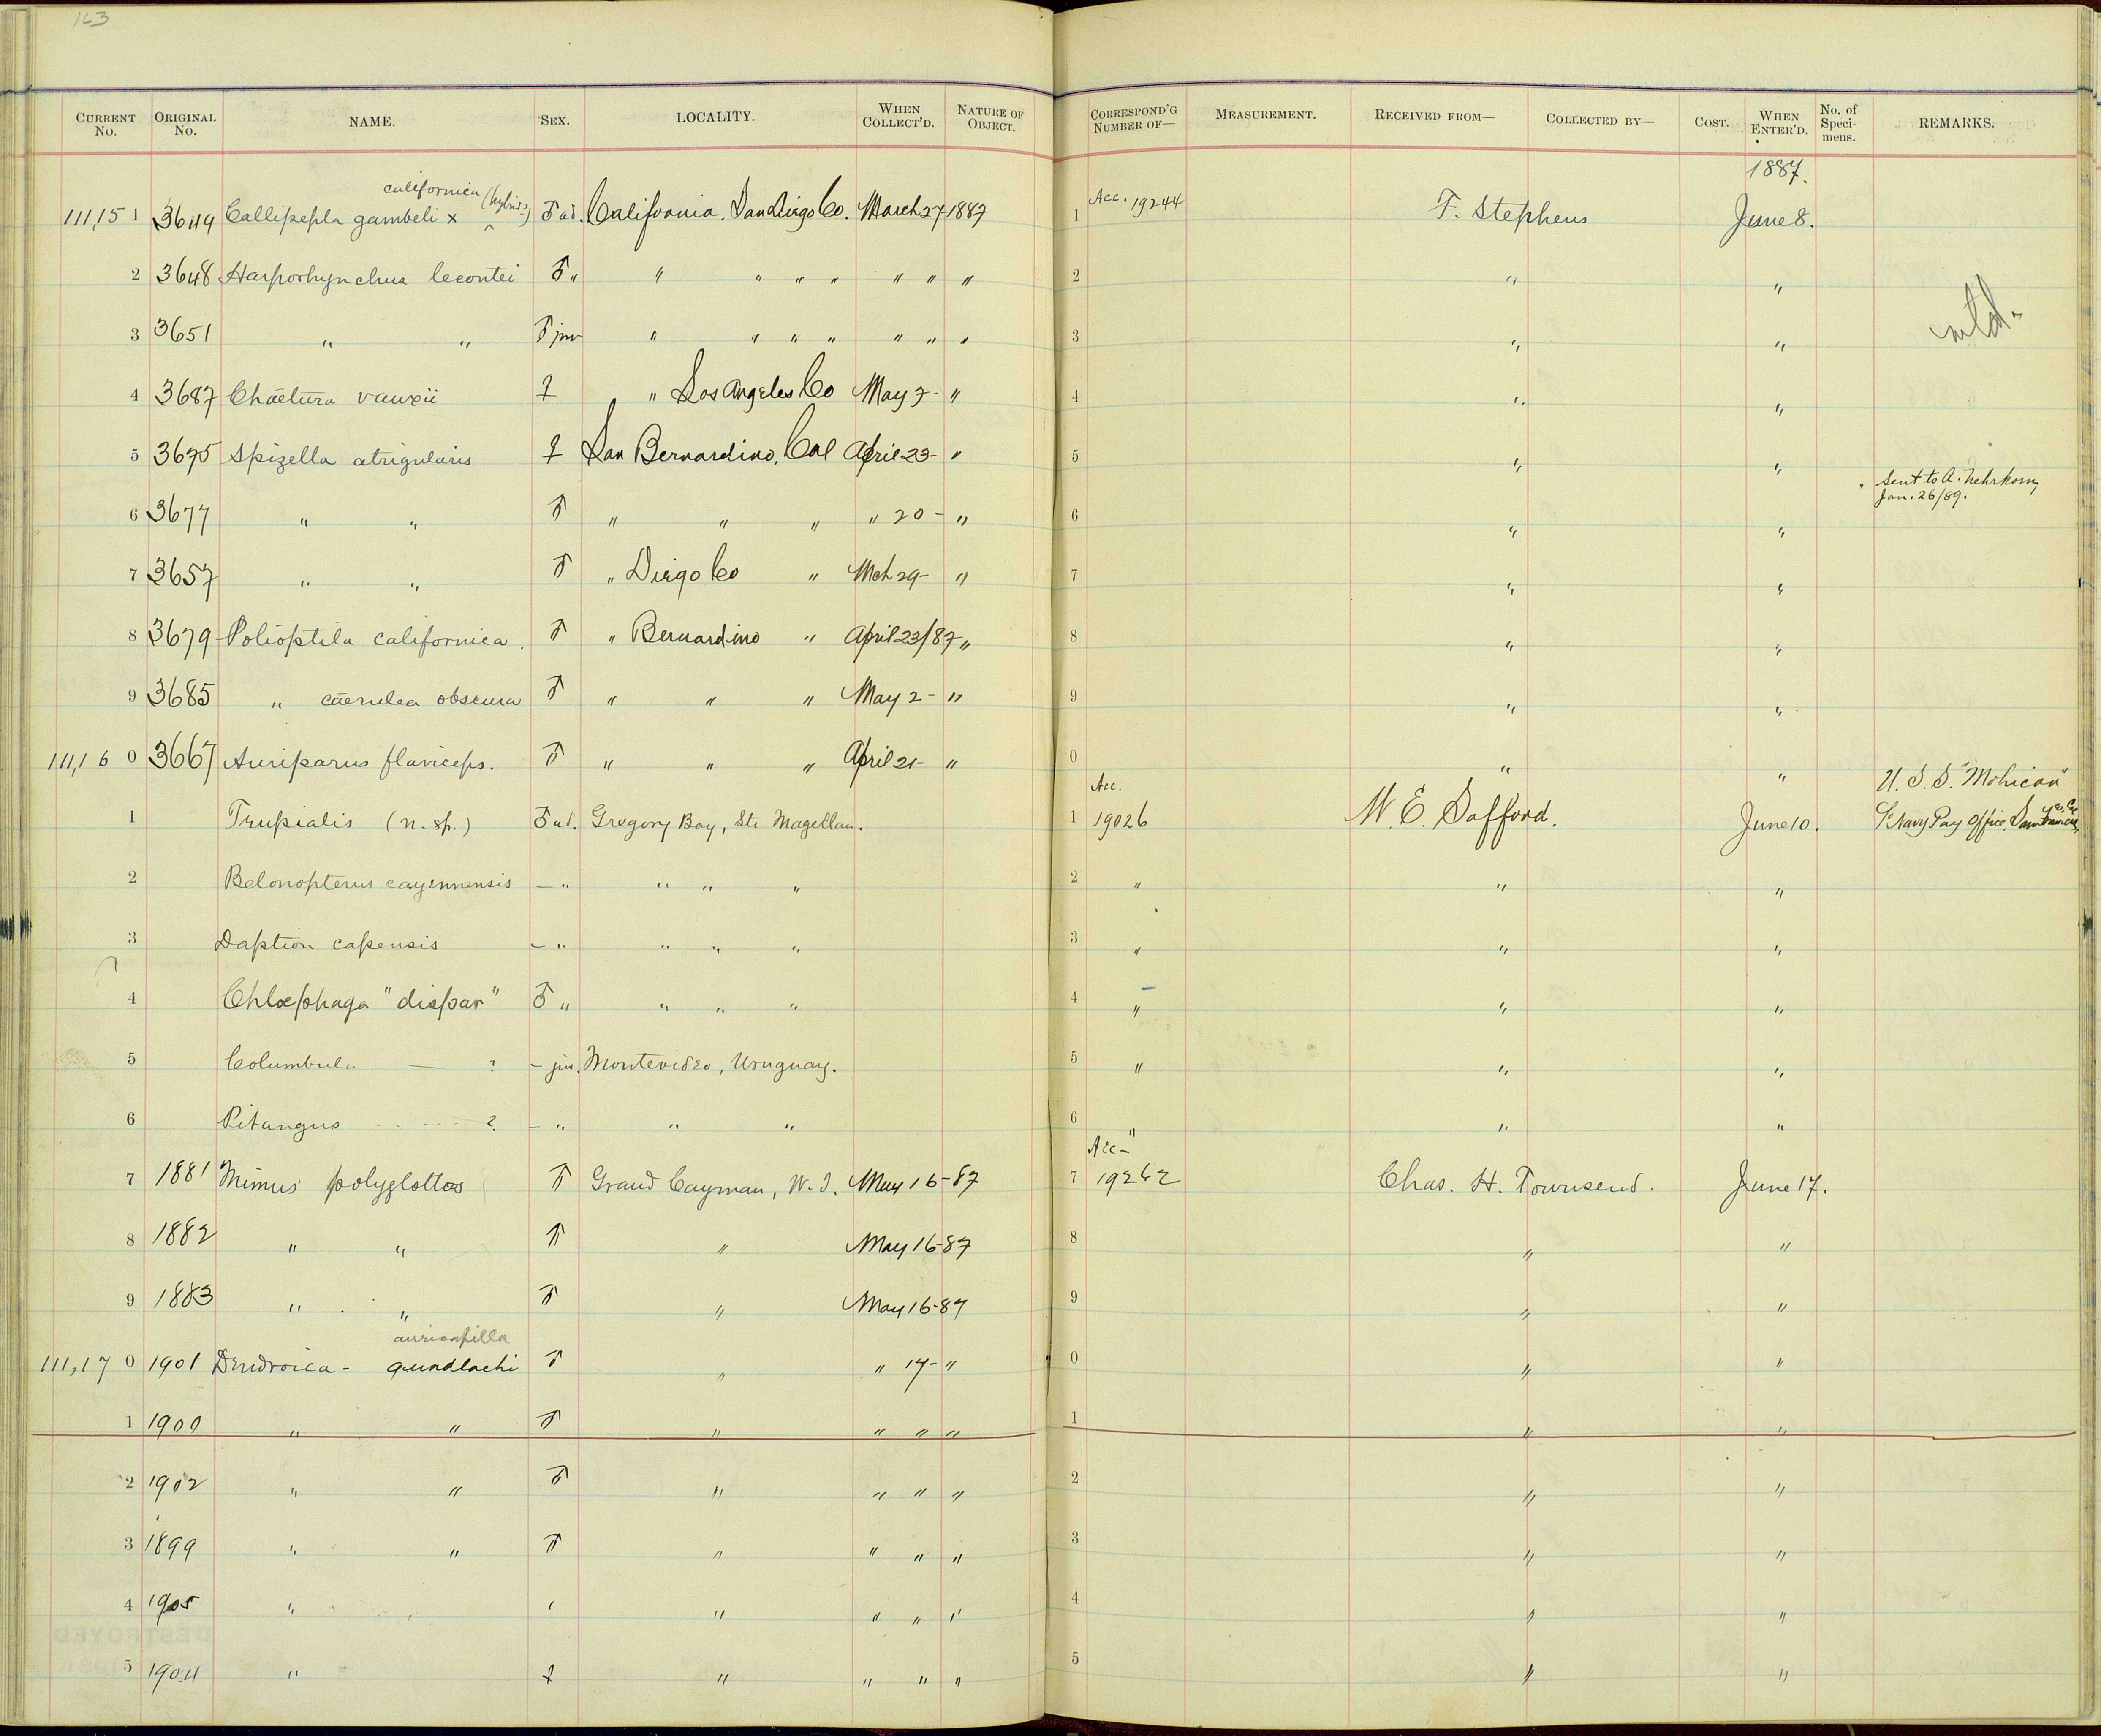 163
CURRENT No. ORIGINAL No. NAME. SEX. LOCALITY. WHEN COLLECT'D. NATURE OF OBJECT. CORRESPOND'G NUMBER OF— MEASUREMENT. RECEIVED FROM— COLLECTED BY— COST. WHEN ENTER'D. No. of Specimens. REMARKS.
1887.
111,15 1 3649 Callipepla gambeli x californica (hybrids) ♂ ad. California. San Diego Co. March 27 1887 1 Acc. 19244 F. Stephens June 8.
2 3648 Harporhynchus lecontei ♂ " " " " " " " " 2 " "
3 3651 " " ♂ juv " " " " " " " 3 " "
4 3687 Chaetura vauxii ♀ " Los Angeles Co May 7- " 4 " "
5 3675 Spizella atrigularis ♀ San Bernardino, Cal April 23- " 5 " "
Sent to A. Nehrkorn, Jan. 26/89.
6 3677 " " ♂ " " " " 20- " 6 " "
7 3657 " " ♂ " Diego Co " Mch 29- " 7 " "
8 3679 Polioptila californica. ♂ " Bernardino " April 23/87 " 8 " "
9 3685 " caerulea obscura ♂ " " " May 2- " 9 " "
111,16 0 3667 Auriparus flaviceps. ♂ " " " April 21- " 0 " "
1 Trupialis (n. sp.) ♂ ad. Gregory Bay, Str Magellan. 1 Acc. 19026 W. E. Safford. June 10. U. S. S. "Mohican" Navy Pay Office, San Francisco,
2 Belonopterus cayennensis — " " " " 2 " " "
3 Daption capensis — " " " " 3 " " "
4 Chloephaga "dispar" ♂ " " " " 4 " " "
5 Columbula — ? — juv. Montevideo, Uruguay. 5 " " "
6 Pitangus ----- ? — " " " 6 " " "
7 1881 Mimus polyglottos ♂ Grand Cayman, W. I. May 16-87 7 Acc- 19262 Chas. H. Townsend. June 17.
8 1882 " " ♂ " May 16-87 8 " "
9 1883 " " ♂ " May 16-87 9 " "
auricapilla
111,17 0 1901 Dendroica - gundlachi ♂ " " 17- " 0 " "
1 1900 " " ♂ " " " " 1 " "
2 1902 " " ♂ " " " " 2 " "
3 1899 " " ♂ " " " " 3 " "
4 1905 " " " " " " 4 " "
5 1904 " ♀ " " " " 5 " "